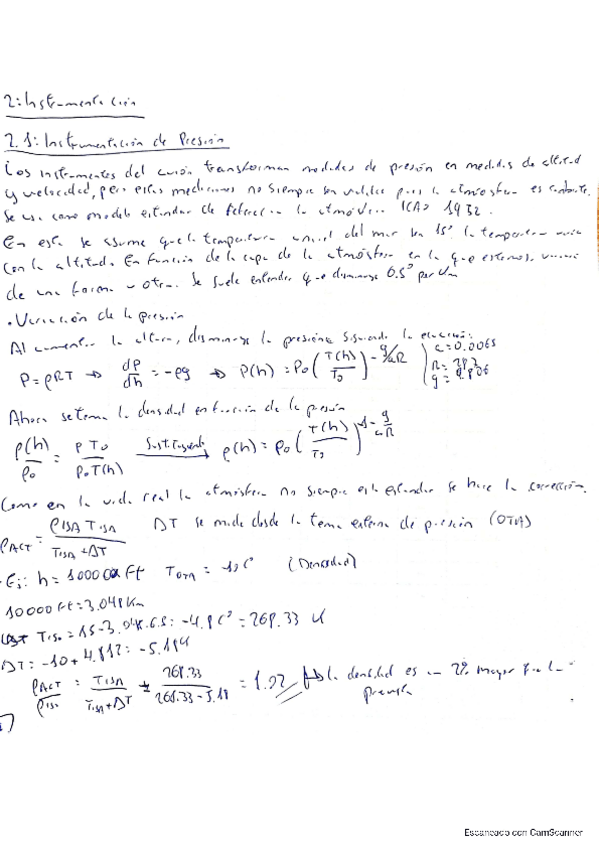 2: Instrumentación
2.1: Instrumentación de Presión
Los instrumentos del avión transforman medidas de presión en medidas de altitud
y velocidad, pero estas mediciones no siempre son validas pues la atmósfera es cambiante.
Se usa como modelo estandar de referencia la atmósfera ICAO 1932.
En esta se assume que la temperatura a nivel del mar son 15º la temperatura varia
con la altitud. En función de la capa de la atmósfera en la que estemos, variará
de una forma u otra. Se suele entender que disminuye 6.5º por Km
• Variación de la presión
Al aumentar la altura, disminuye la presión siguiendo la ecuación:
P = ρRT → dP/dh = -ρg → P(h) = P₀ (T(h)/T₀)^(-g/aR) a = 0.0065
R = 287
g = 9.806
Ahora se toma la densidad en función de la presión
ρ(h)/ρ₀ = P T₀/P₀T(h) Sustituyendo → ρ(h) = ρ₀ (T(h)/T₀)
Como en la vida real la atmósfera no siempre está estandar se hace la corrección.
ρACT = ρISA TISA/TISA + ΔT ΔT se mide desde la toma externa de presión (OTA)
Ej: h = 10000 ft TOTA = -10 Cº (Densidad)
10000 ft = 3.048 Km
TISA = 15 - 3.048·6.5: -4.8 Cº = 268.33 K
ΔT: -10 + 4.812: -5.188
ρACT/ρISA = TISA/TISA + ΔT = 268.33/268.33 - 5.18 = 1.02 → la densidad es un 2% mayor que la